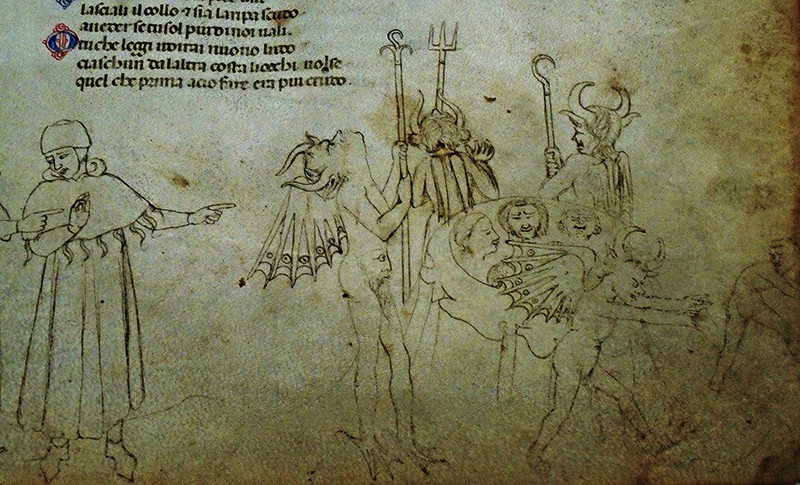 lasciasi il collo ⁊ sia la ripa scudo
aueder se tu sol piu di noi uali.
O tu che leggi udirai nuouo ludo
ciaschun da laltra costa liocchi uolse
quel che prima acio fare era piu crudo.